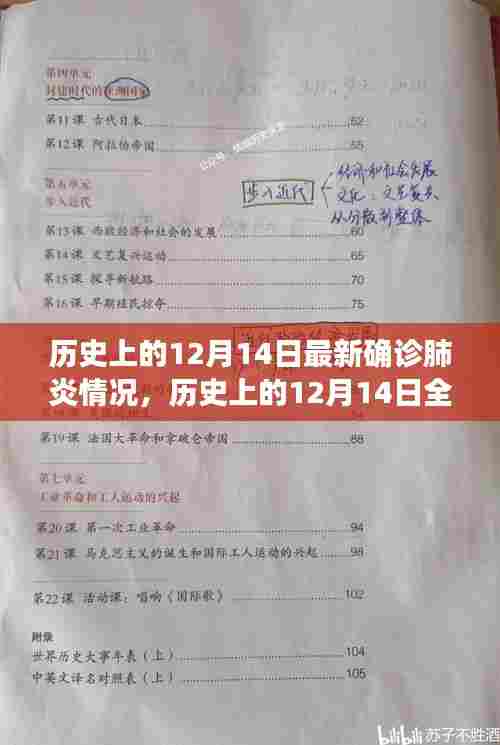 第四单元
封建时代的亚洲国家
第11课 古代日本 52
第12课 阿拉伯帝国 55
第五单元
步入近代
步入近代
经济和社会发展
文化:文艺复兴
从分散到整体
第13课 西欧经济和社会的发展 60
第14课 文艺复兴运动 65
第15课 探寻新航路 70
第16课 早期殖民掠夺 75
历史上的12月14日最新确诊肺
炎情况,历史上的12月14日全
第19课 法国大革命和拿破仑帝国 88
第七单元
工业革命和工人运动的兴起
第20课 第一次工业革命 94
第21课 马克思主义的诞生和国际工人运动的兴起 98
第22课 活动课:唱响《国际歌》 102
附录
世界历史大事年表(上) 104
中英文译名对照表(上) 105
bilibili 苏子不胜酒